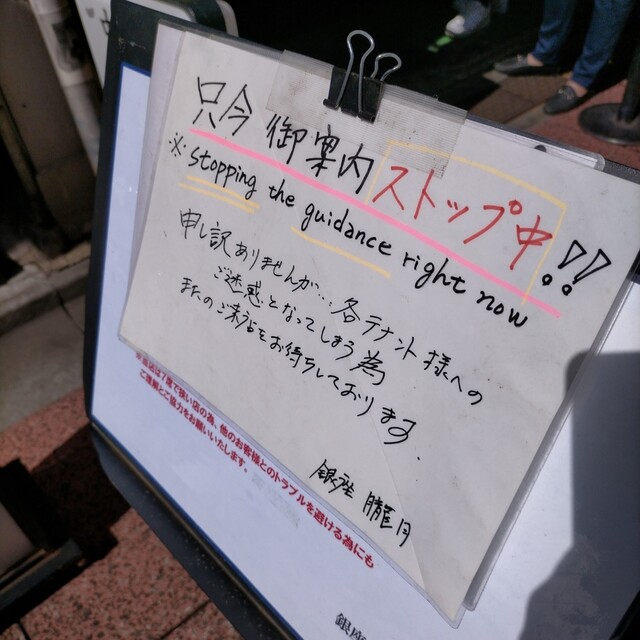 只今 御案内 ストップ中!!
※ stopping the guidance right now
申し訳ありませんが…各テナント様への
ご迷惑となってしまう為
またのご来店をお待ちしております.
銀座 朧月
は人気で狭い店の為、他のお客様とのトラブルを避ける為にも
ご理解とご協力をお願いいたします。
銀座